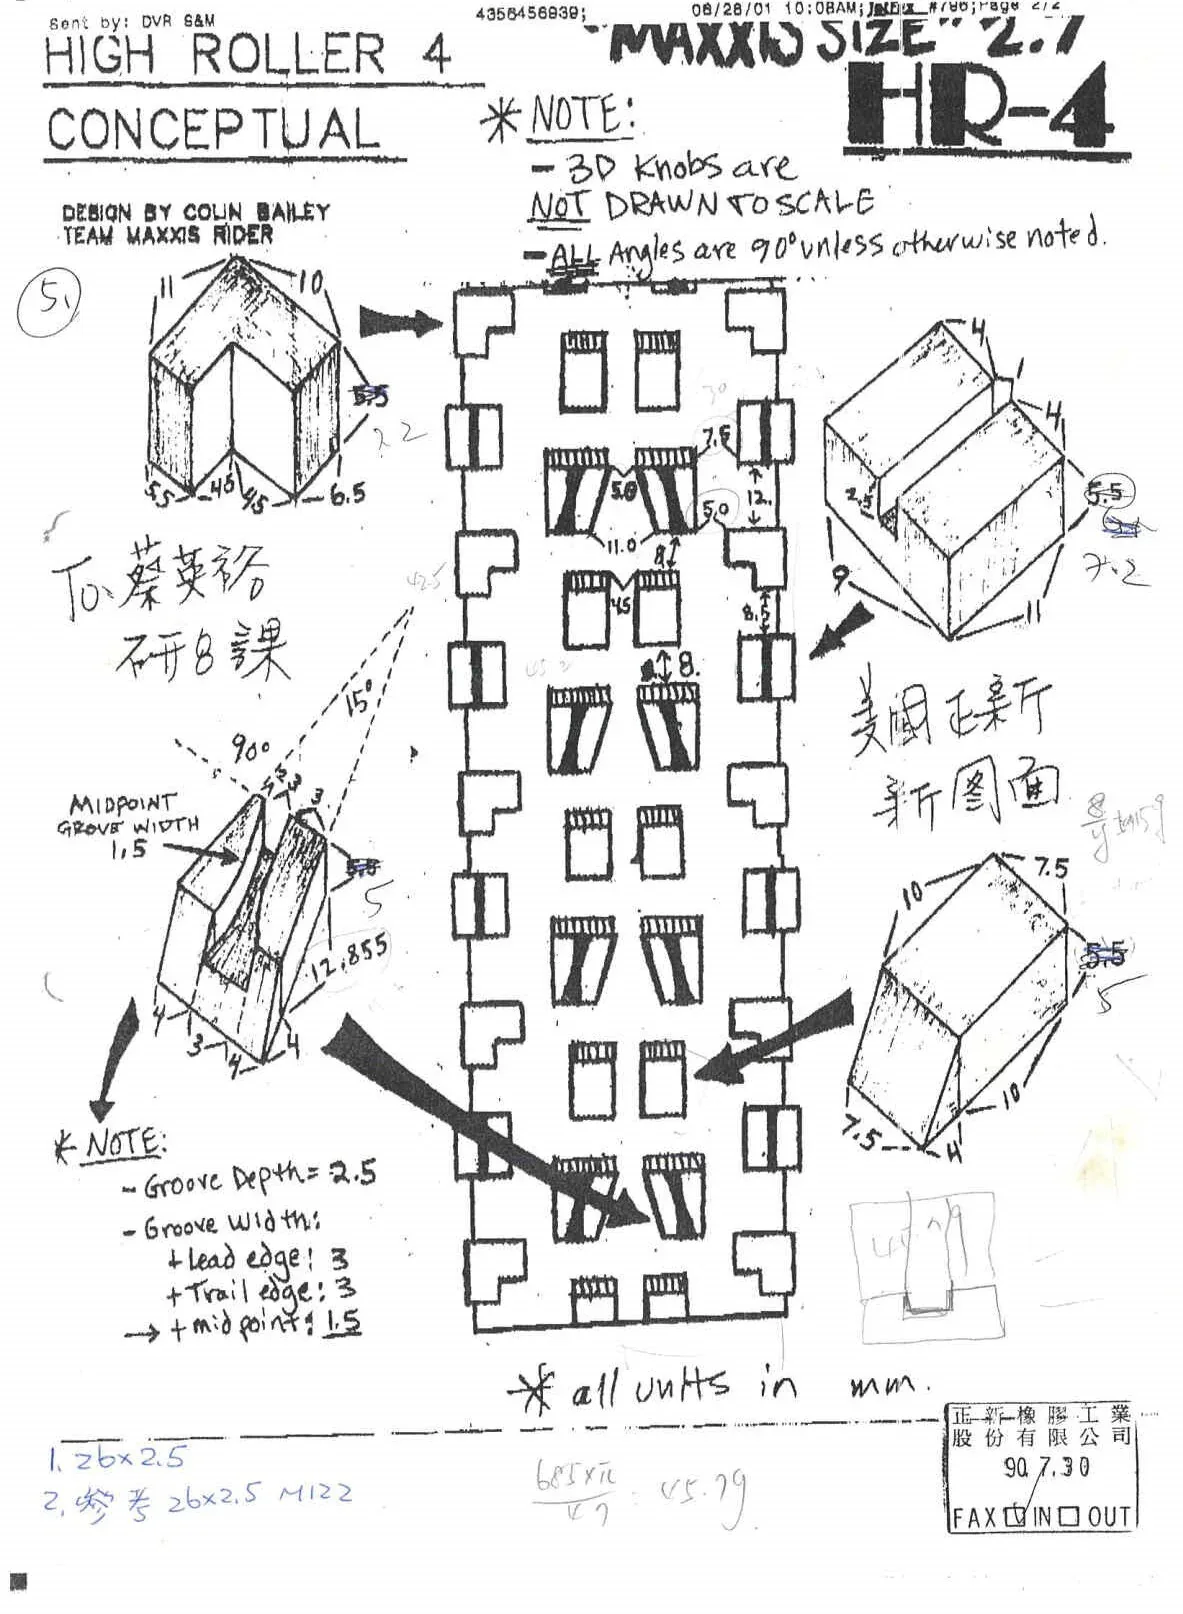 Sent by: DVR S&M
4356456939;
HIGH ROLLER 4
CONCEPTUAL
"MAXXIS SIZE" 2.7
HR-4
DESIGN BY COLIN BAILEY
TEAM MAXXIS RIDER
* NOTE:
- 3D Knobs are
NOT DRAWN TO SCALE
- ALL Angles are 90° unless otherwise noted.
5.
11
10
5.5
5.5
4.5
4.5
6.5
4
1
4
2.5
5.5
7.2
9
11
7.5
5.0
12.
5.0
11.0
8
4.5
8.5
8.
To 蔡英裕
研8課
美國正新
新图面
15°
90°
MIDPOINT
GROVE WIDTH
1.5
3
3
5
12.855
4
3
4
4
7.5
10
5.5
5
10
7.5
4
* NOTE:
- Groove Depth = 2.5
- Groove Width:
+ Lead edge: 3
+ Trail edge: 3
→ + midpoint: 1.5
* all units in mm.
1. 26x2.5
2. 參考 26x2.5 M122
685xπ
47
45.79
正新橡膠工業
股份有限公司
90.7.30
FAX IN OUT